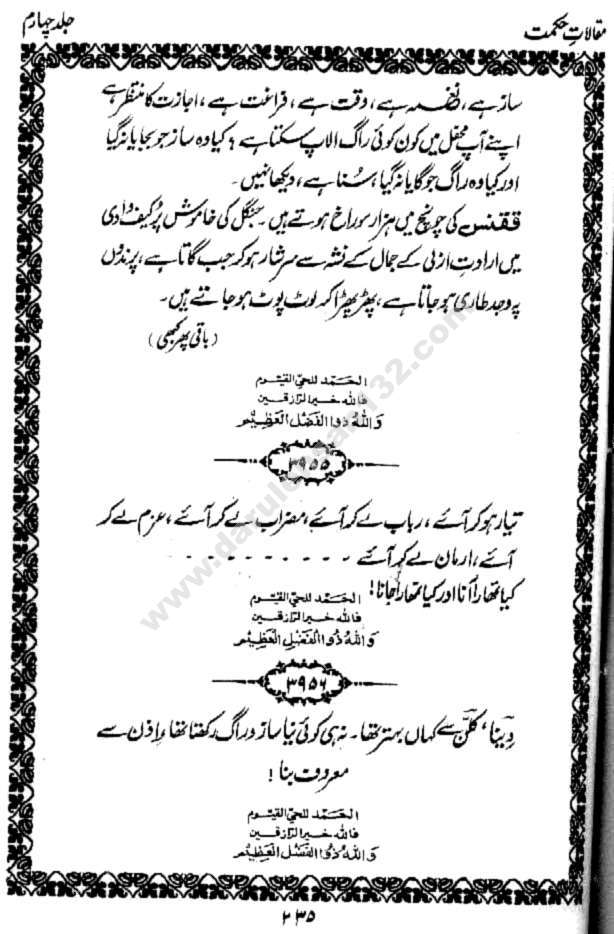 مقالاتِ حکمت
جلد چہارم
ساز ہے، نغمہ ہے، وقت ہے، فراغت ہے، اجازت کا منتظر ہے
اپنے آپ محفل میں کون کوئی راگ الاپ سکتا ہے؛ کیا وہ ساز جو بجایا نہ گیا
اور کیا وہ راگ جو گایا نہ گیا، سُنا ہے، دیکھا نہیں۔
ققنس کی چونچ میں ہزار سوراخ ہوتے ہیں۔ جنگل کی خاموش پُرکیف وادی
میں ارادتِ ازلی کے جمال کے نشہ سے سرشار ہو کر جب گاتا ہے، پرندوں
پہ وجد طاری ہو جاتا ہے، پھڑپھڑا کر لوٹ پوٹ ہو جاتے ہیں۔
(باقی پھر کبھی)
الحَمد للحيّ القيّوم
فالله خير الرّازقين
وَاللهُ ذُوا الفَضْلِ الْعَظِيْمِ
۳۹۵۵
تیار ہو کر آئے، رباب لے کر آئے، مضراب لے کر آئے، عزم لے کر
آئے، ارمان لے کر آئے ۔ ۔ ۔ ۔ ۔ ۔ ۔ ۔ ۔ ۔ ۔
کیا تمھارا آنا اور کیا تمھارا جانا!
الحَمد للحيّ القيّوم
فالله خير الرّازقين
وَاللهُ ذُوا الْفَضْلِ الْعَظِيْمِ
۳۹۵۶
دِینا، کلّن سے کہاں بہتر تھا۔ نہ ہی کوئی نیا ساز و راگ رکھتا تھا، اِذن سے
معروف بنا!
الحَمد للحيّ القيّوم
فالله خير الرّازقين
وَاللهُ ذُوا الفَضْل الْعَظِيْمِ
۲۳۵